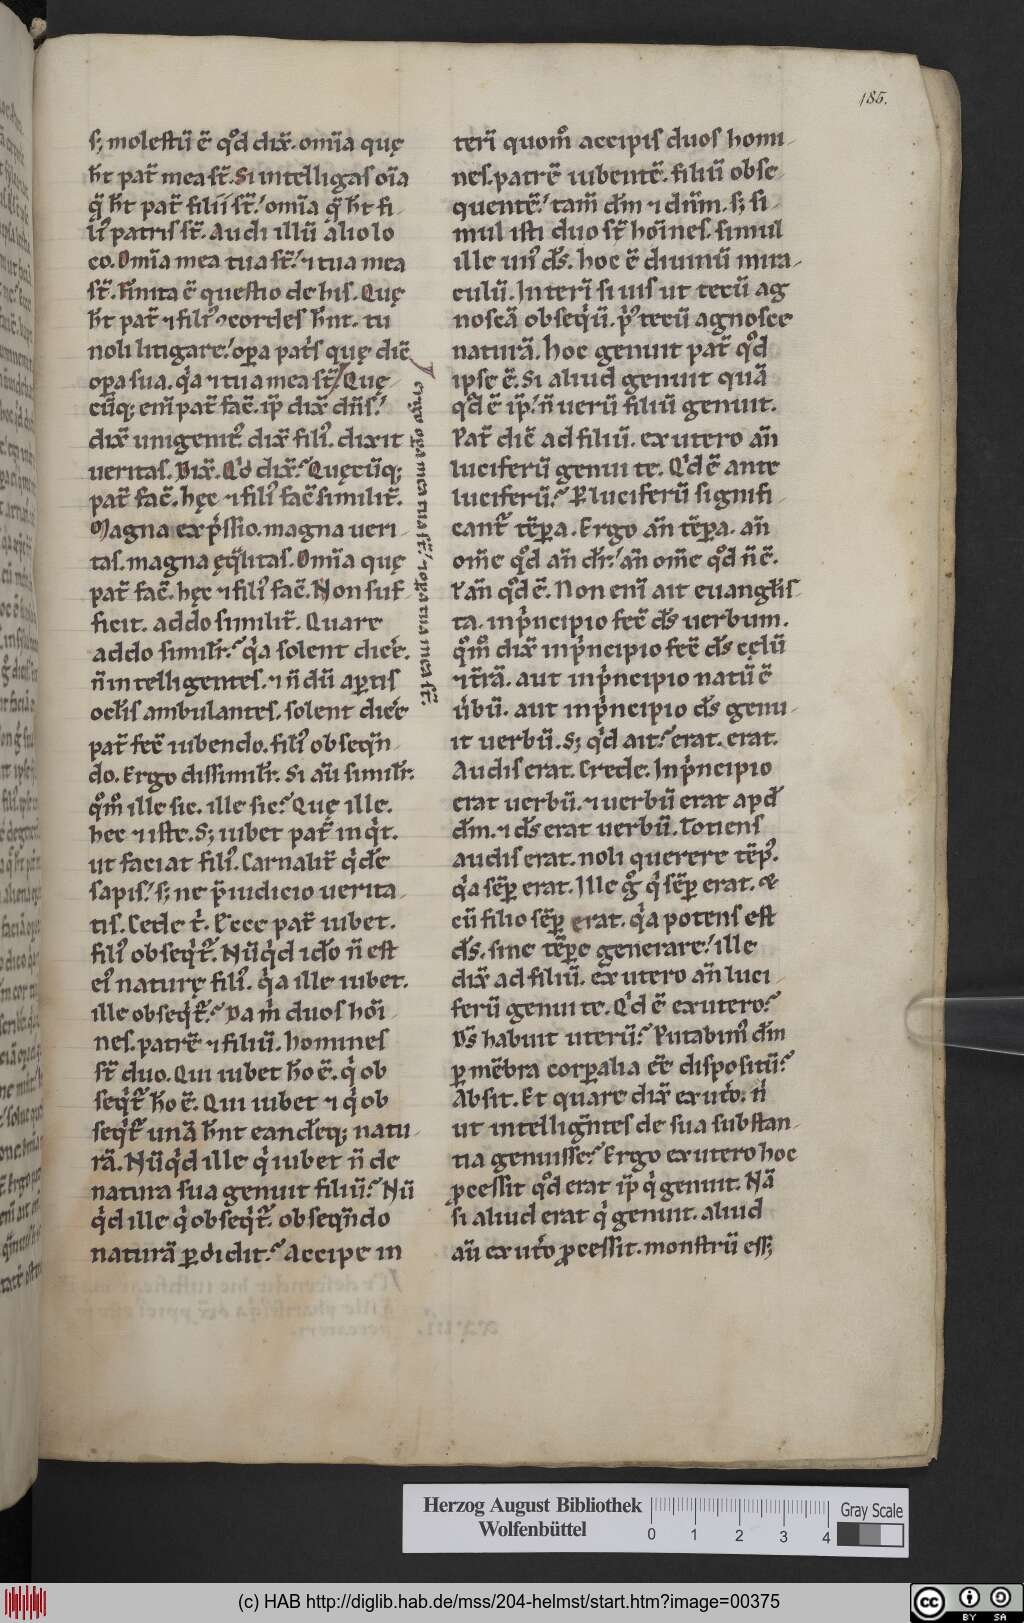 185.
s; molestū ē qd dix̄. om̄ia quę
hn̄t pat̄ mea st̄. Si intelligas oīa
q̄ hn̄t pat̄ filii st̄. om̄ia q̄ hn̄t fi-
li' patris st̄. Audi illū alio lo
co. Om̄ia mea tua st̄. ⁊ tua mea
st̄. Finita ē questio de his. Quę
hn̄t pat̄ ⁊ fili'
noli litigare. opa pat̄s quę diē
opa sua. q̇a ⁊ tua mea st̄. Quę-
cūq; eni pat̄ facē. ip̄ dix̄ dn̄s.
dix̄ unigenit'. dix̄ fili'. dixit
veritas. Dix̄. Qd dix̄? Quęcūq;
pat̄ facē. hęc ⁊ fili' facē similit̄.
Magna exp̄ssio. magna veri-
tas. magna ęq̄litas. Om̄ia quę
pat̄ facē. hęc ⁊ fili' facē. Non suf-
ficit. addo similit̄. Quare
addo similr̄? q̇a solent dicē.
n̄ intelligentes. ⁊ n̄dū aptis
oclis ambulantes. solent dicē
pat̄ fecē iubendo. fili' obseqn̄-
do. Ergo dissimilr̄. Si aū similr̄.
qm̄ ille sic. ille sic? Quę ille.
hec ⁊ iste. S; iubet pat̄ inq̇t.
ut faciat fili'. Carnalit̄ q̇dē
sapis. s; ne p̄iudicio verita-
tis. Cedo t̄. Ecce pat̄ iubet.
fili' obseq̇t̄. Nūq̇d ido n̄ est
ei' naturę fili'. q̇a ille iubet.
ille obseq̇t̄? Da m̄ duos hoī-
nes. patrē ⁊ filiū. homines
st̄ duo. Qui iubet hō ē. q̇ ob
seq̇t̄ hō ē. Qui iubet ⁊ q̇ ob
seq̇t̄ unā hn̄t eandeq; natu-
rā. Nūq̇d ille q̇ iubet n̄ de
natura sua genuit filiū? Nū
q̇d ille q̇ obseq̇t̄. obseqn̄do
naturā pdidit? Accipe in
ergo opa mea tua st̄. ⁊ opa tua mea st̄.
terī quom̄ accipis duos homi-
nes. patrē iubentē. filiū obse-
quentē. tam̄ dm̄ ⁊ dnm̄. s; si-
mul isti duo st̄ hoīnes. simul
ille un' ds̄. hoc ē divinū mira-
culū. Interī si vis ut tecū ag
noscā obseq̇ū. p' tecū agnosce
naturā. Hoc genuit pat̄ qd
ipse ē. Si aliud genuit quā
qd ē ip̄. n̄ verū filiū genuit.
Pat̄ dicē ad filiū. ex utero an̄
luciferū genui te. Qd ē ante
luciferū? P luciferū signifi-
cant̄ tēpa. Ergo an̄ tēpa. an̄
om̄e qd an̄ dr̄. an̄ om̄e qd n̄ ē.
ł an̄ qd ē. Non enī ait euanglis-
ta. in ṗncipio fecē ds̄ verbum.
qm̄ dix̄ in ṗncipio fecē ds̄ cęlū
⁊ tr̄ā. aut in ṗncipio natū ē
u̇bū. aut in ṗncipio ds̄ genu-
it verbū. S; q̇d ait? erat. erat.
Audis erat. Crede. In ṗncipio
erat verbū. ⁊ verbū erat apd
dm̄. ⁊ ds̄ erat verbū. Totiens
audis erat. noli querere tēp'.
q̇a sēp erat. Ille g̊ q̇ sēp erat. &
cū filio sēp erat. q̇a potens est
ds̄. sine tēpe generare. ille
dix̄ ad filiū. ex utero an̄ luci-
ferū genui te. Qd ē ex utero?
Ds̄ habuit uterū? Putabim' dm̄
p mēbra corpalia eē dispositū?
Absit. Et quare dix̄ ex utō. n̄
ut intellign̄tes de sua substan-
tia genuisse? Ergo ex utero hoc
pcessit qd erat ip̄ q̇ genuit. Nā
si aliud erat q̇ genuit. aliud
aū ex utō pcessit. monstrū ess;
Herzog August Bibliothek
Wolfenbüttel
0 1 2 3 4
Gray Scale
(c) HAB http://diglib.hab.de/mss/204-helmst/start.htm?image=00375
cc BY SA